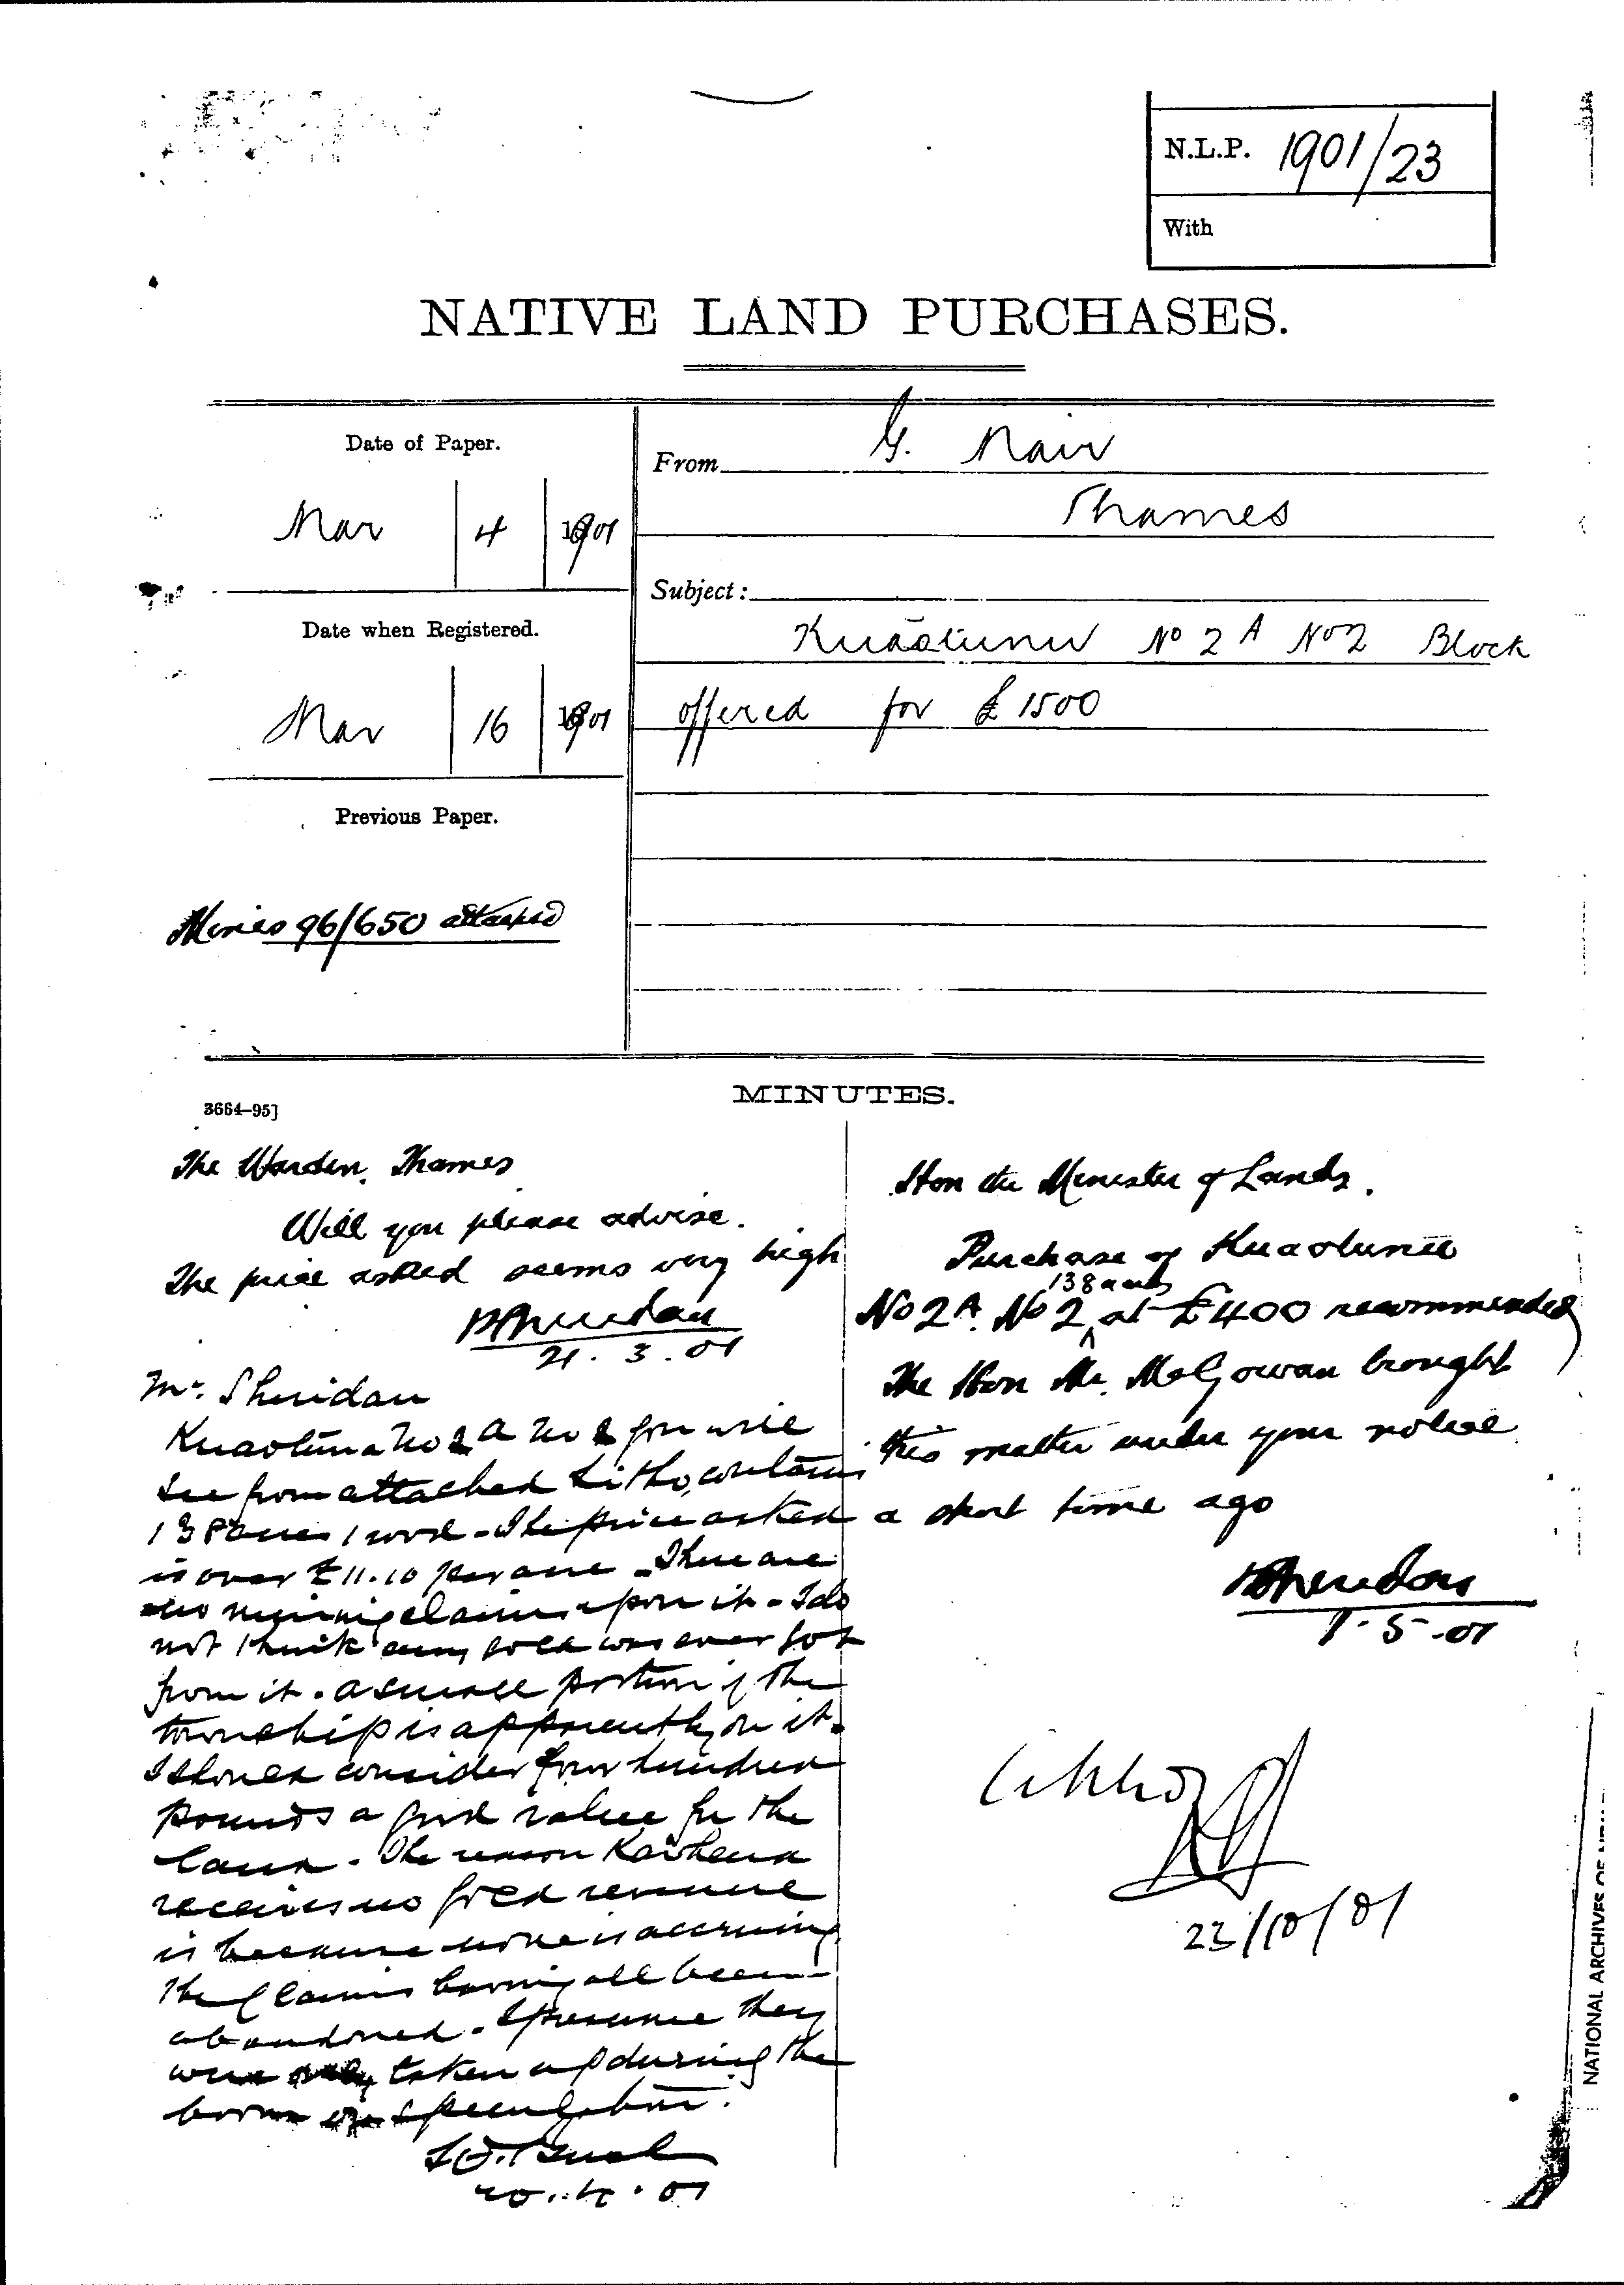 N.L.P. 1901/23
With
NATIVE LAND PURCHASES.
Date of Paper.
Mar 4 1901
Date when Registered.
Mar 16 1901
Previous Paper.
Mines 96/650 attached
From G. Nair
Thames
Subject:
Kuaotunu No 2 A No 2 Block
offered for £1500
3664–95]
MINUTES.
The Warden, Thames
Will you please advise.
The price asked seems very high
P Sheridan
21. 3. 01
Mr. Sheridan
Kuaotunu No 2 A No 2 you will
see from attached Litho, contains
138 acres 1 rood - The price asked
is over £11.10 per acre - There are
no mining claims upon it - I do
not think any gold was ever got
from it. a small portion of the
township is apparently on it.
I should consider four hundred
pounds a good value for the
land. The reason
receives no gold revenue
is because none is accruing
the claims having all been
abandoned. I presume they
were only taken up during the
boom speculation.
20. 4. 01
Hon the Minister of Lands.
Purchase of Kuaotunu
138 acres
No 2 A. No 2 at £400 recommended
The Hon Mr. McGowan brought
this matter under your notice
a short time ago
P Sheridan
1-5-01
23/10/01
NATIONAL ARCHIVES OF